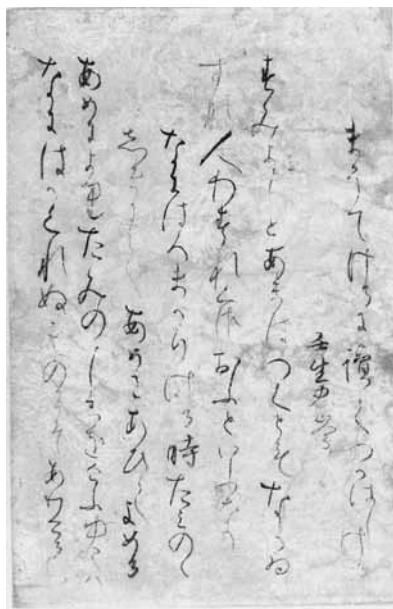 まうてけるに讀てつかはしける
壬生忠岑
すみよしとあまはつくともなかゐ
すな人わすれくさおふといふなり
なにはへまかりける時たみのゝ
しまにて あめにあひてよめる
あめによりたみのゝしまをけふゆけは
なにはかくれぬものにそありける